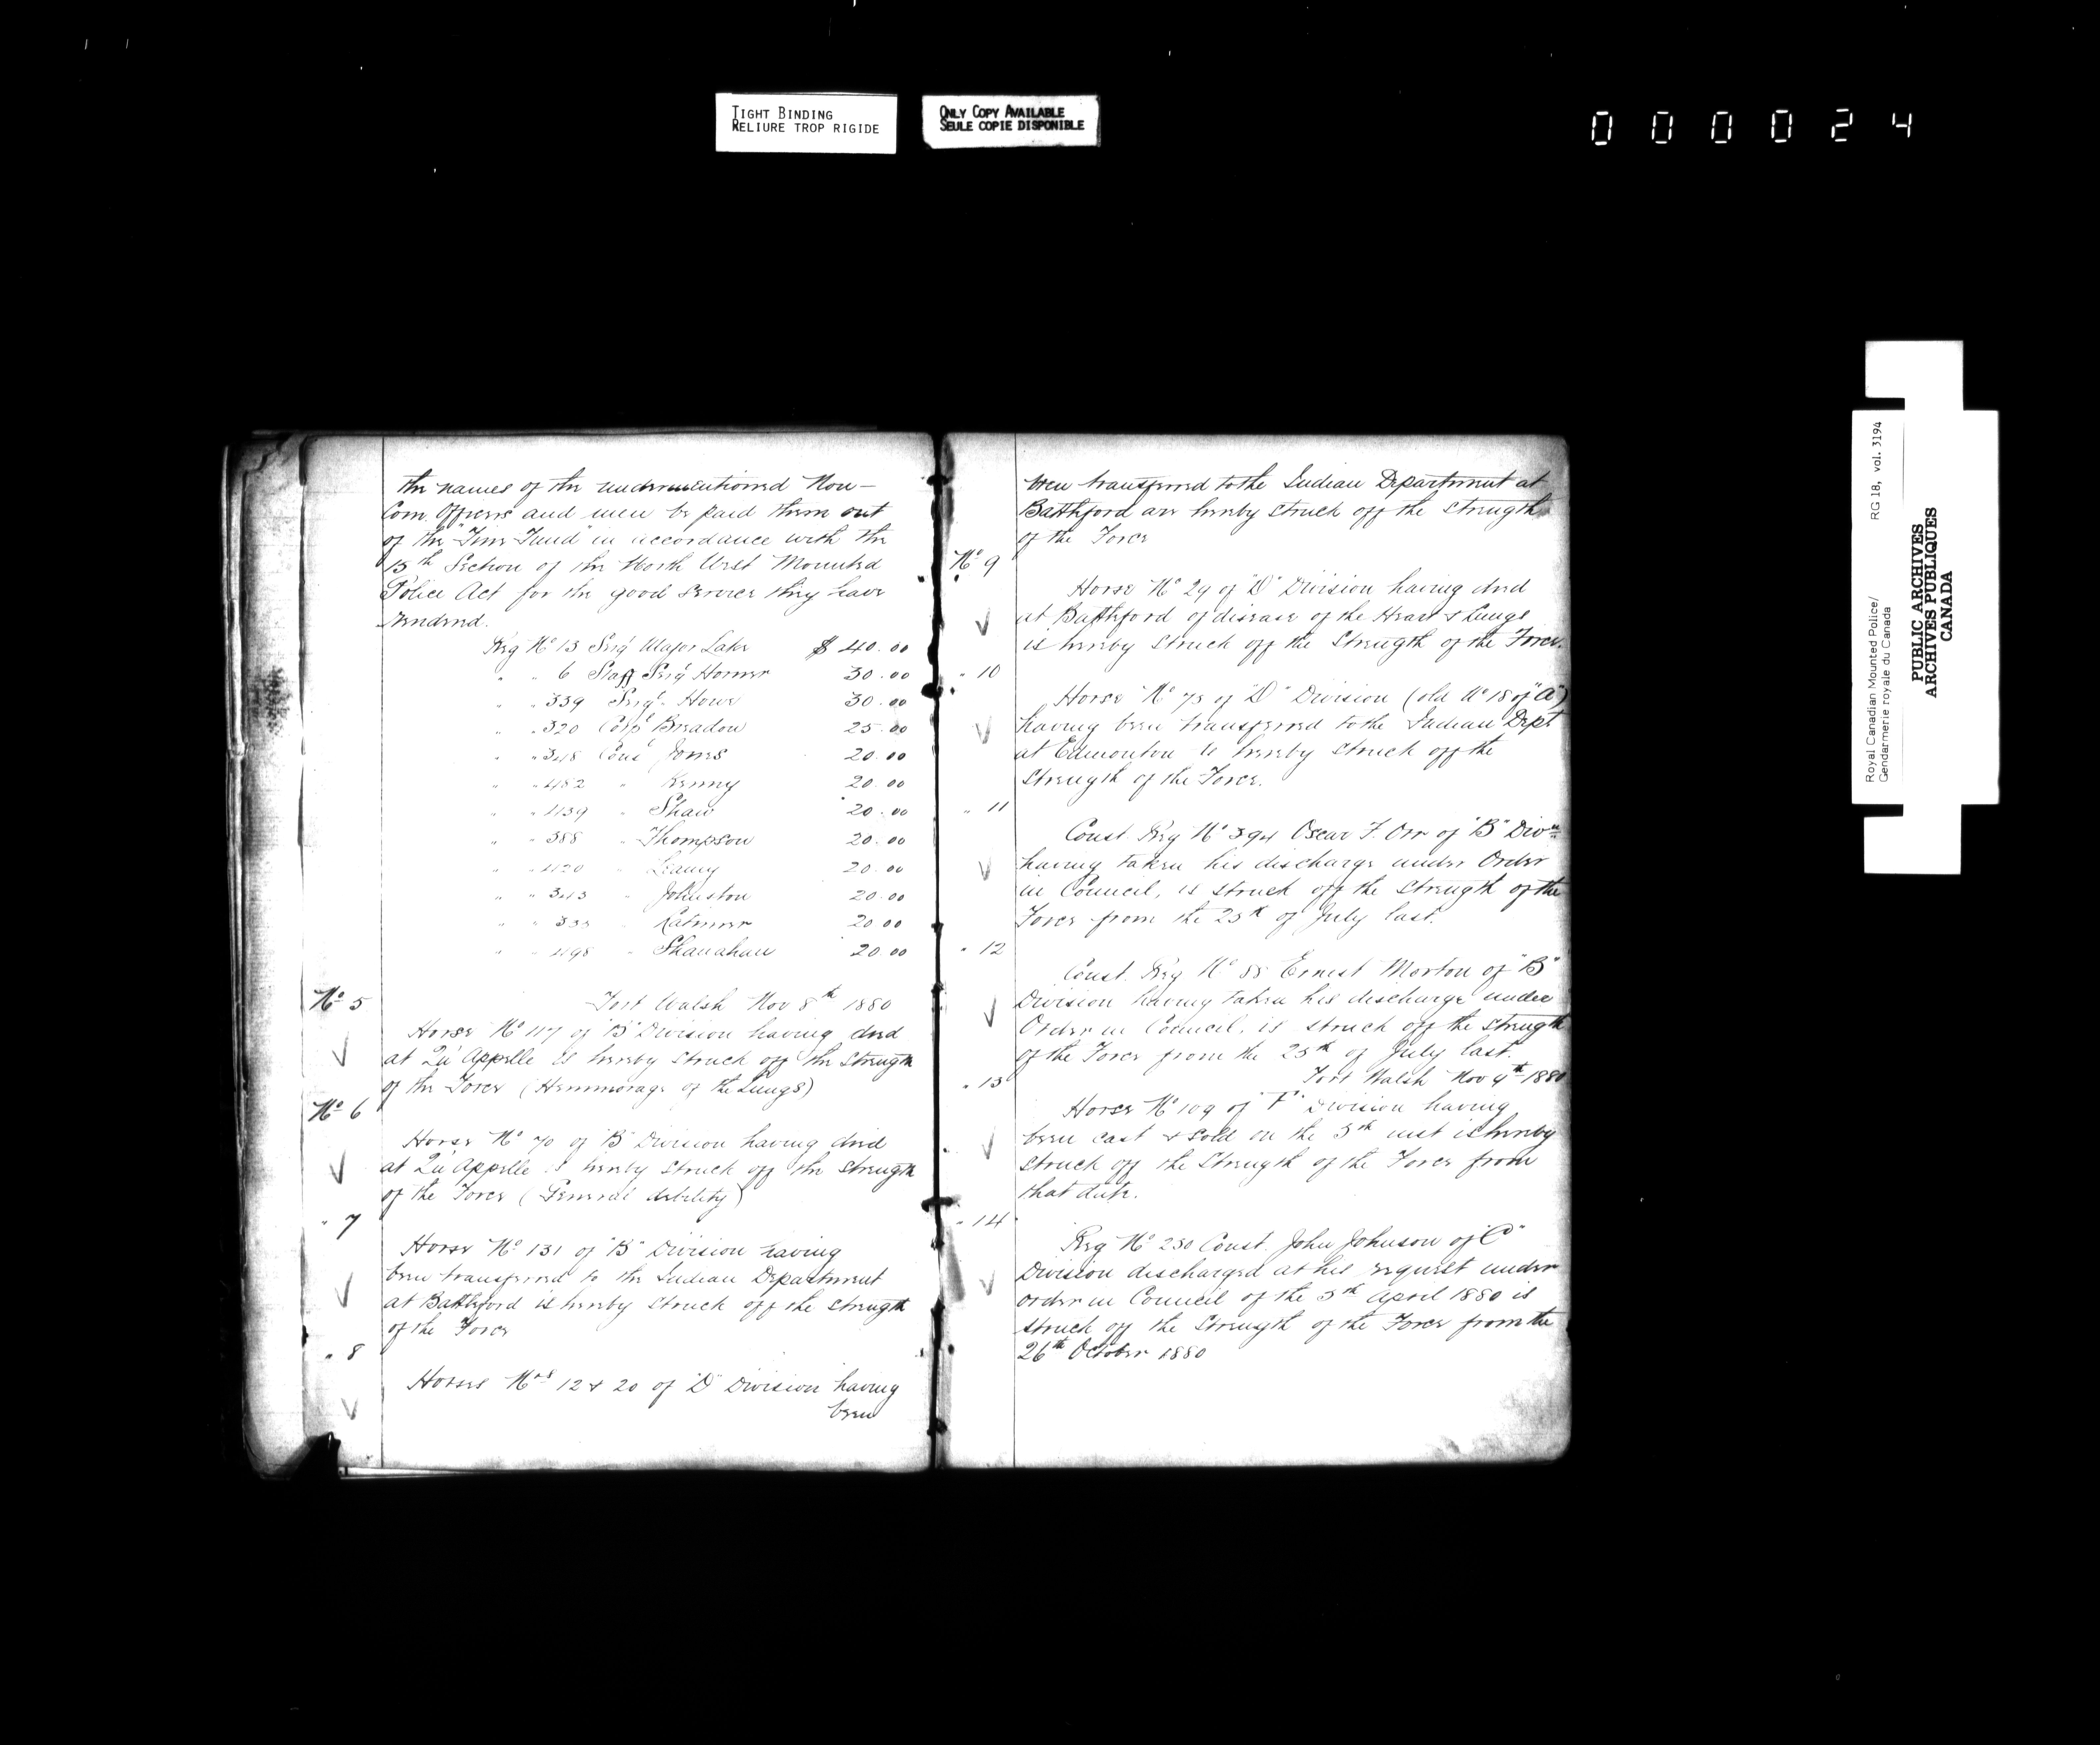 TIGHT BINDING
RELIURE TROP RIGIDE
ONLY COPY AVAILABLE
SEULE COPIE DISPONIBLE
000024
the names of the undermentioned Non-
Com. Officers and men be paid them out
of the "Fine Fund" in accordance with the
15th Section of the North West Mounted
Police Act for the good services they have
rendered.
Reg No 13 Sergt Major Lake $ 40.00
" " 6 Staff Sergt Homer 30.00
" " 339 Sergt Howe 30.00
" " 320 Corpl Breadon 25.00
" " 348 Const Jones 20.00
" " 482 " Kenny 20.00
" " 1139 " Shaw 20.00
" " 388 " Thompson 20.00
" " " 20.00
" " 343 " Johnston 20.00
" " " 20.00
" " 498 " Shanahan 20.00
No 5
Fort Walsh Nov 8th 1880
Horse No 117 of "B" Division having died
at Qu'Appelle is hereby struck off the strength
of the Force (Hemmorage of the Lungs)
No 6
Horse No 70 of "B" Division having died
at Qu'Appelle is hereby struck off the strength
of the Force (General debility)
" 7
Horse No 131 of "B" Division having
been transferred to the Indian Department
at Battleford is hereby struck off the strength
of the Force
" 8
Horses Nos 12 & 20 of "D" Division having
been
been transferred to the Indian Department at
Battleford are hereby struck off the strength
of the Force
No 9
Horse No 29 of "D" Division having died
at Battleford of disease of the Heart & Lungs
is hereby struck off the Strength of the Force.
" 10
Horse No 75 of "D" Division (old No 18 of "A")
having been transferred to the Indian Dept
at Edmonton is hereby struck off the
strength of the Force.
" 11
Const. Reg No 394 Oscar F. Orr of "B" Divn
having taken his discharge under Order
in Council, is struck off the strength of the
Force from the 25th of July last.
" 12
Const. Reg No 88 Ernest Morton of "B"
Division having taken his discharge under
Order in Council, is struck off the strength
of the Force from the 25th of July last.
Fort Walsh Nov 9th 1880
" 13
Horse No 109 of "F" Division having
been cast & sold on the 5th inst is hereby
struck off the Strength of the Force from
that date.
" 14
Reg No 230 Const. John Johnson of "C"
Division discharged at his request under
order in Council of the 5th April 1880 is
struck off the Strength of the Force from the
26th October 1880
Royal Canadian Mounted Police/
Gendarmerie royale du Canada
RG 18, vol. 3194
PUBLIC ARCHIVES
ARCHIVES PUBLIQUES
CANADA